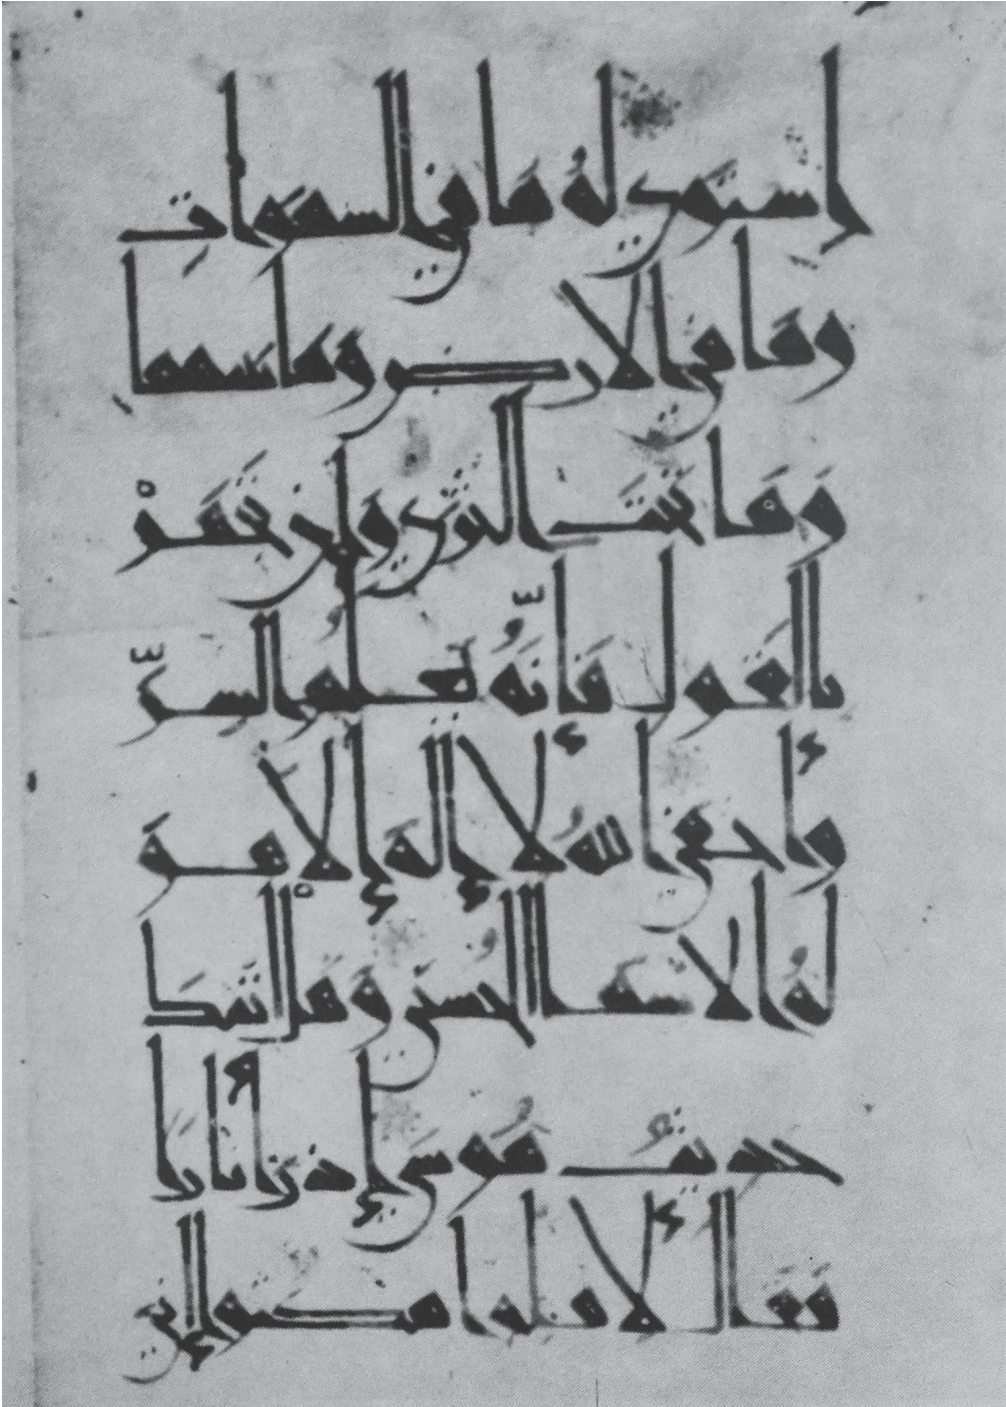 استوى لهُ مَا في السموات
وَمَا في الارض وَمَا بينهما
وَمَا تحتَ الثرى وَإن تجهَرْ
بالقول فَإنّهُ يَعلمُ السرّ
وأخفى اللهُ لا إلهَ إلا هوَ
لهُ الاسماء الحسنى وَهَلْ اتيكَ
حديثُ مُوسى إذ رأى نارا
فَقَال لأهله امكثوا إني